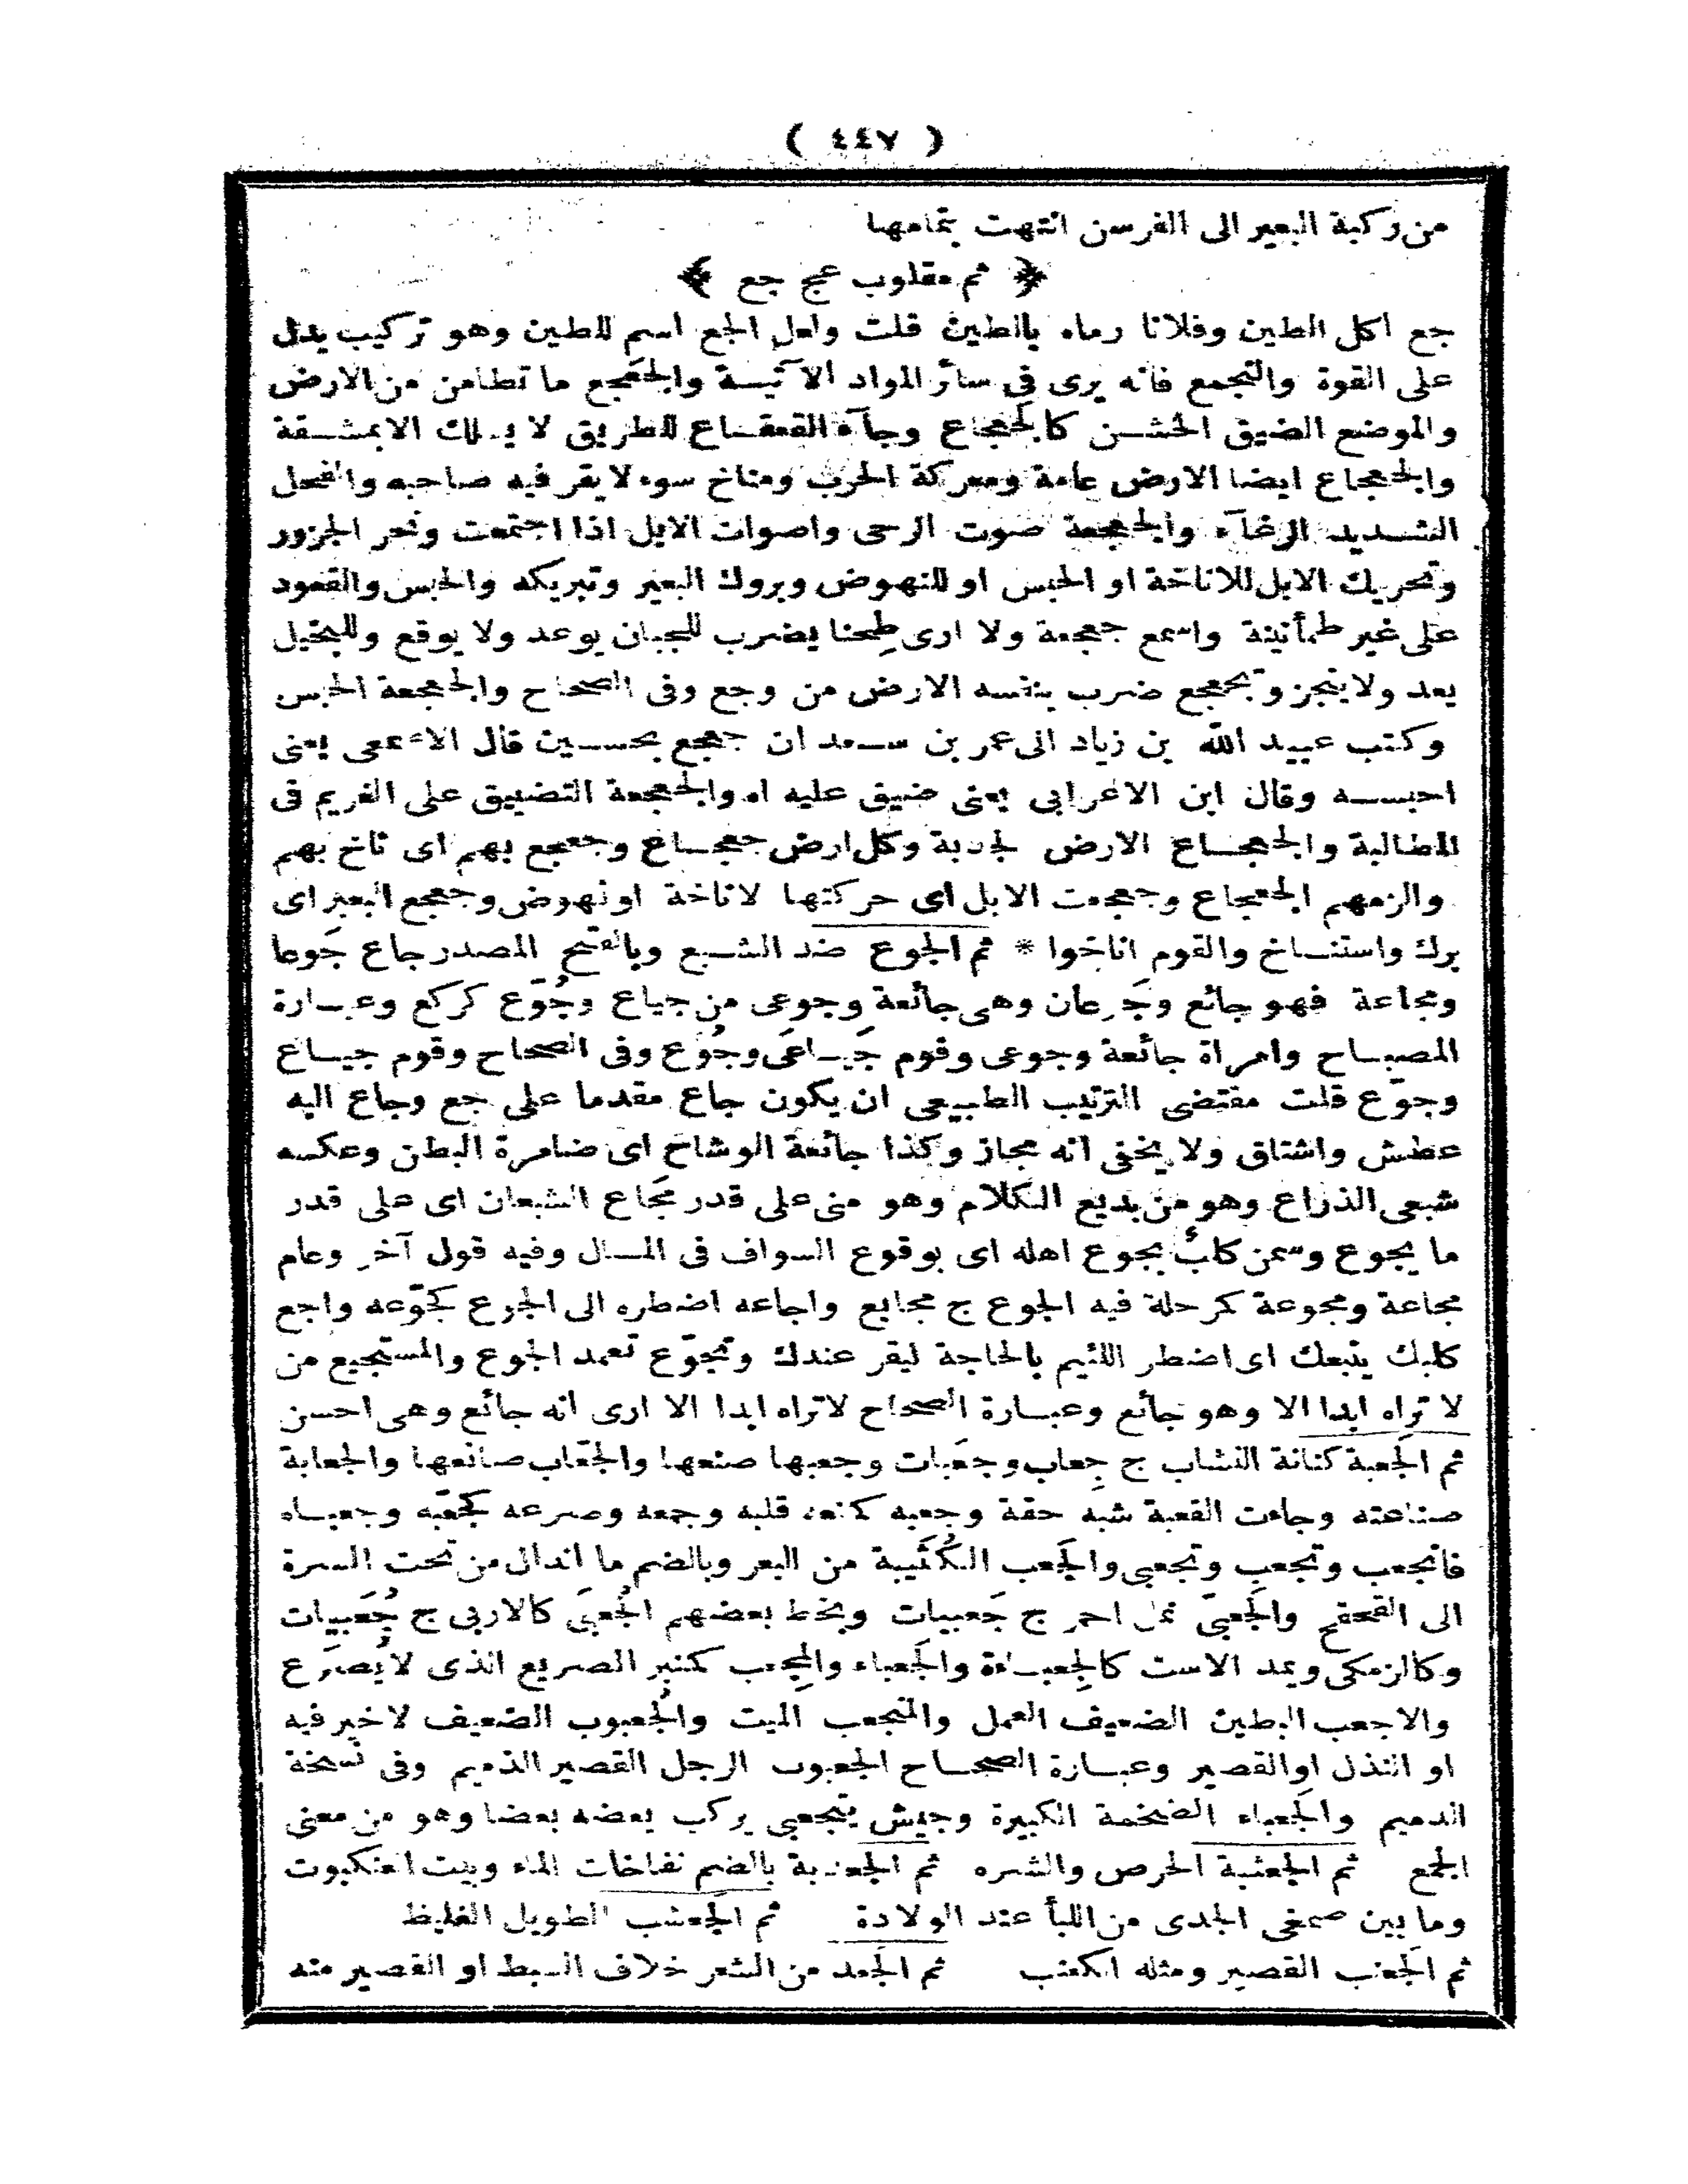 ( ٤٤٧ )
من ركبة البعير الى الفرسن انتهت بتمامها
﴿ ثم مقلوب عج جع ﴾
جع اكل الطين وفلانا رماه بالطين قلت ولعل الجع اسم للطين وهو تركيب يدل
على القوة والتجمع فانه يرى فى سائر المواد الآتيسة والجعجع ما تطامن من الارض
والموضع الضيق الخشن كالجعجاع وجآء القعقاع للطريق لا يسلك الا بمشقة
والجعجاع ايضا الارض عامة ومعركة الحرب ومناخ سوء لا يقر فيه صاحبه والفحل
الشديد الرغآء والجعجعة صوت الرحى واصوات الابل اذا اجتمعت ونحر الجزور
وتحريك الابل للاناخة او الحبس او للنهوض وبروك البعير وتبريكه والحبس والقعود
على غير طمأنينة واسمع جعجعة ولا ارى طِحنا يضرب للجبان يوعد ولا يوقع وللبخيل
يعد ولا ينجز وتجعجع ضرب بنفسه الارض من وجع وفى الصحاح والجعجعة الحبس
وكتب عبيد الله بن زياد الى عمر بن سعد ان جعجع بحسين قال الاصمعى يعنى
احبسه وقال ابن الاعرابى يعنى ضيق عليه اه والجعجعة التضييق على الغريم فى
المطالبة والجعجاع الارض الجدبة وكل ارض جعجاع وجعجع بهم اى ناخ بهم
والزمهم الجعجاع وجعجعت الابل اى حركتها لاناخة او نهوض وجعجع البعير اى
برك واستناخ والقوم اناخوا * ثم الجوع ضد الشبع وبالفتح المصدر جاع جَوعا
ومجاعة فهو جائع وجَوعان وهى جائعة وجوعى من جياع وجُوّع كركع وعبارة
المصباح وامراة جائعة وجوعى وقوم جَياعَى وجُوّع وفى الصحاح وقوم جياع
وجوّع قلت مقتضى الترتيب الطبيعى ان يكون جاع مقدما على جع وجاع اليه
عطش واشتاق ولا يخفى انه مجاز وكذا جائعة الوشاح اى ضامرة البطن وعكسه
شبعى الذراع وهو من بديع الكلام وهو منى على قدر مَجَاع الشبعان اى على قدر
ما يجوع وسمن كلبٌ بجوع اهله اى بوقوع السواف فى المال وفيه قول آخر وعام
مجاعة ومجوعة كمرحلة فيه الجوع ج مجايع واجاعه اضطره الى الجوع كجوّعه واجع
كلبك يتبعك اى اضطر اللئيم بالحاجة ليقر عندك وتجوّع تعمد الجوع والمستجيع من
لا تراه ابدا الا وهو جائع وعبارة الصحاح لا تراه ابدا الا ارى انه جائع وهى احسن
ثم الجَعبة كنانة النشاب ج جِعاب وجعَبات وجعبها صنعها والجعّاب صانعها والجعابة
صناعته وجاءت القعبة شبه حقة وجعبه كمنعه قلبه وجمعه وصرعه كجعّبه وجعباه
فانجعب وتجعب وتجعبى والجَعب الكُثَيبة من البعر وبالضم ما اندال من تحت السرة
الى القحقح والجَعبىّ نمل احمر ج جَعبيات وبخط بعضهم الجُعبَى كالاربى ج جُعَبيات
وكالزمكى ويمد الاست كالجِعباءة والجَعباء والمِجعب كمنبر الصريع الذى لا يُصرَع
والاجعب البطين الضعيف العمل والمتجعب الميت والجُعبوب الضعيف لا خير فيه
او النذل او القصير وعبارة الصحاح الجعبوب الرجل القصير الذميم وفى نسخة
الدميم والجَعباء الضخمة الكبيرة وجيش يتجعبى يركب بعضه بعضا وهو من معنى
الجمع ثم الجعثبة الحرص والشره ثم الجعدبة بالضم نفاخات الماء وبيت العنكبوت
وما بين صمغى الجدى من اللبأ عند الولادة ثم الجَعشب الطويل الغليظ
ثم الجَعنب القصير ومثله الكعنب ثم الجَعد من الشعر خلاف السبط او القصير منه